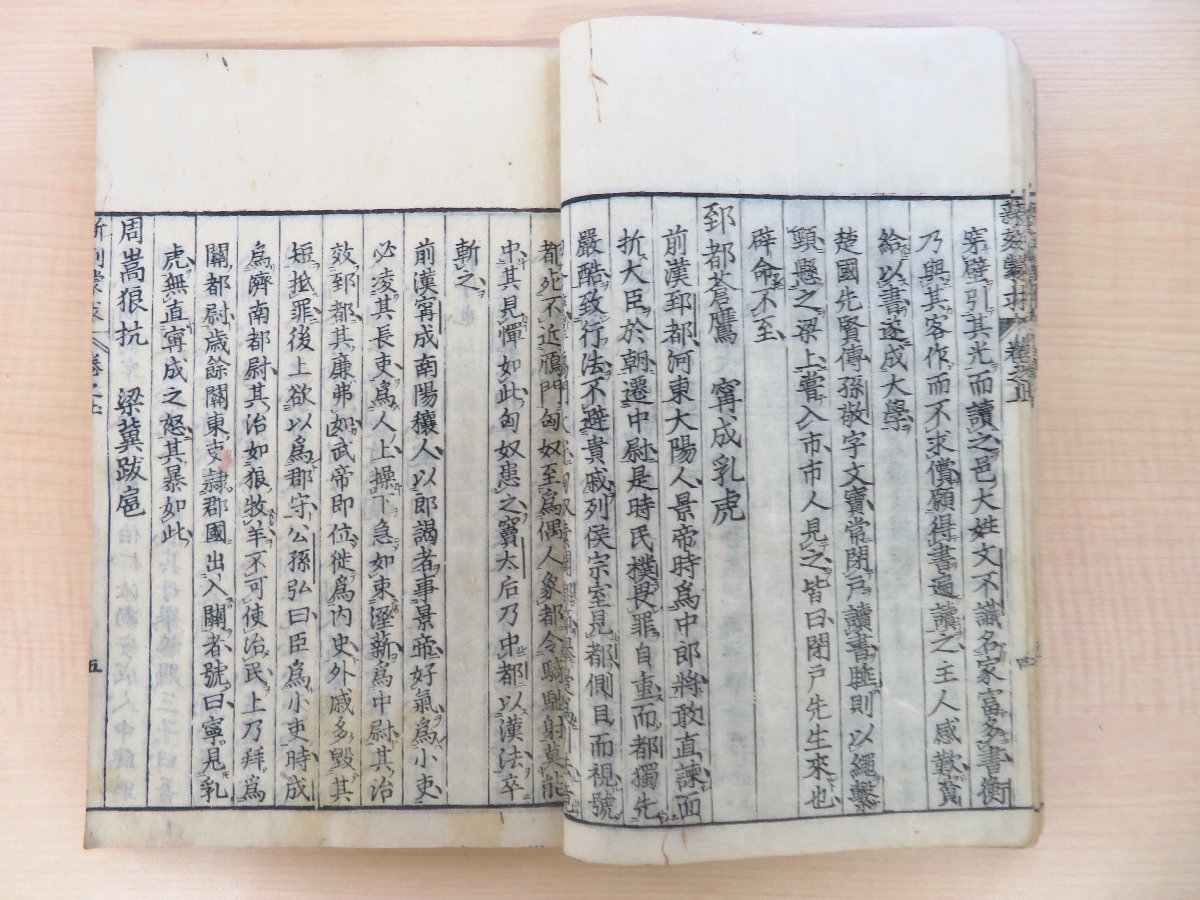 穿壁引其光而讀之邑大姓文不識名家富多書衡
乃與其客作而不求償願得書遍讀之主人感歎資
給以書遂成大學
楚國先賢傳孫敬字文寶常閉戸讀書睡則以繩繫
頸懸之梁上嘗入市市人見之皆曰閉戸先生來也
辟命不至
郅都蒼鷹 甯成乳虎
前漢郅都河東大陽人景帝時爲中郎將敢直諫面
折大臣於朝遷中尉是時民樸畏罪自重而都獨先
嚴酷致行法不避貴戚列侯宗室見都側目而視號
都死不近鴈門匈奴至爲偶人象都令騎馳射莫能
中其見憚如此匈奴患之竇太后乃中都以漢法卒
斬之
前漢甯成南陽穰人以郎謁者事景帝好氣爲小吏
必淩其長吏爲人上操下急如束溼薪爲中尉其治
效郅都其廉弗如武帝即位徙爲内史外戚多毀其
短抵罪後上欲以爲郡守公孫弘曰臣爲小吏時成
爲濟南都尉其治如狼牧羊不可使治民上乃拜爲
關都尉歳餘關東吏隷郡國出入關者號曰寧見乳
虎無直甯成之怒其暴如此
周嵩狼抗 梁冀跋扈
五